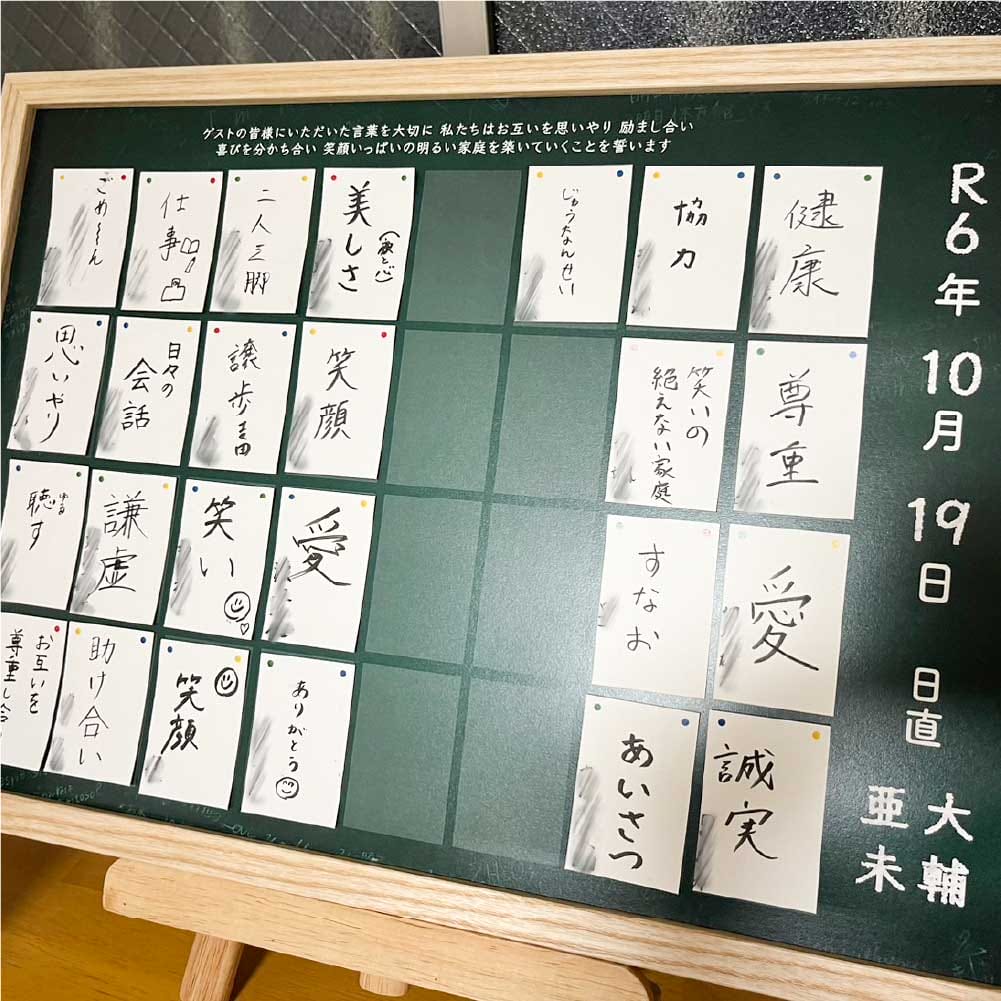 ゲストの皆様にいただいた言葉を大切に 私たちはお互いを思いやり 励まし合い
喜びを分かち合い 笑顔いっぱいの明るい家庭を築いていくことを誓います
R6年 10月 19日 日直
大輔
亜未
健康
尊重
愛
誠実
協力
笑いの
絶えない家庭
すなお
あいさつ
じゅうなんせい
美しさ
笑顔
愛
ありがとう
二人三脚
譲歩
笑い
笑顔
仕事
日々の
会話
謙虚
助け合い
思いやり
聴す
ゆる
お互いを